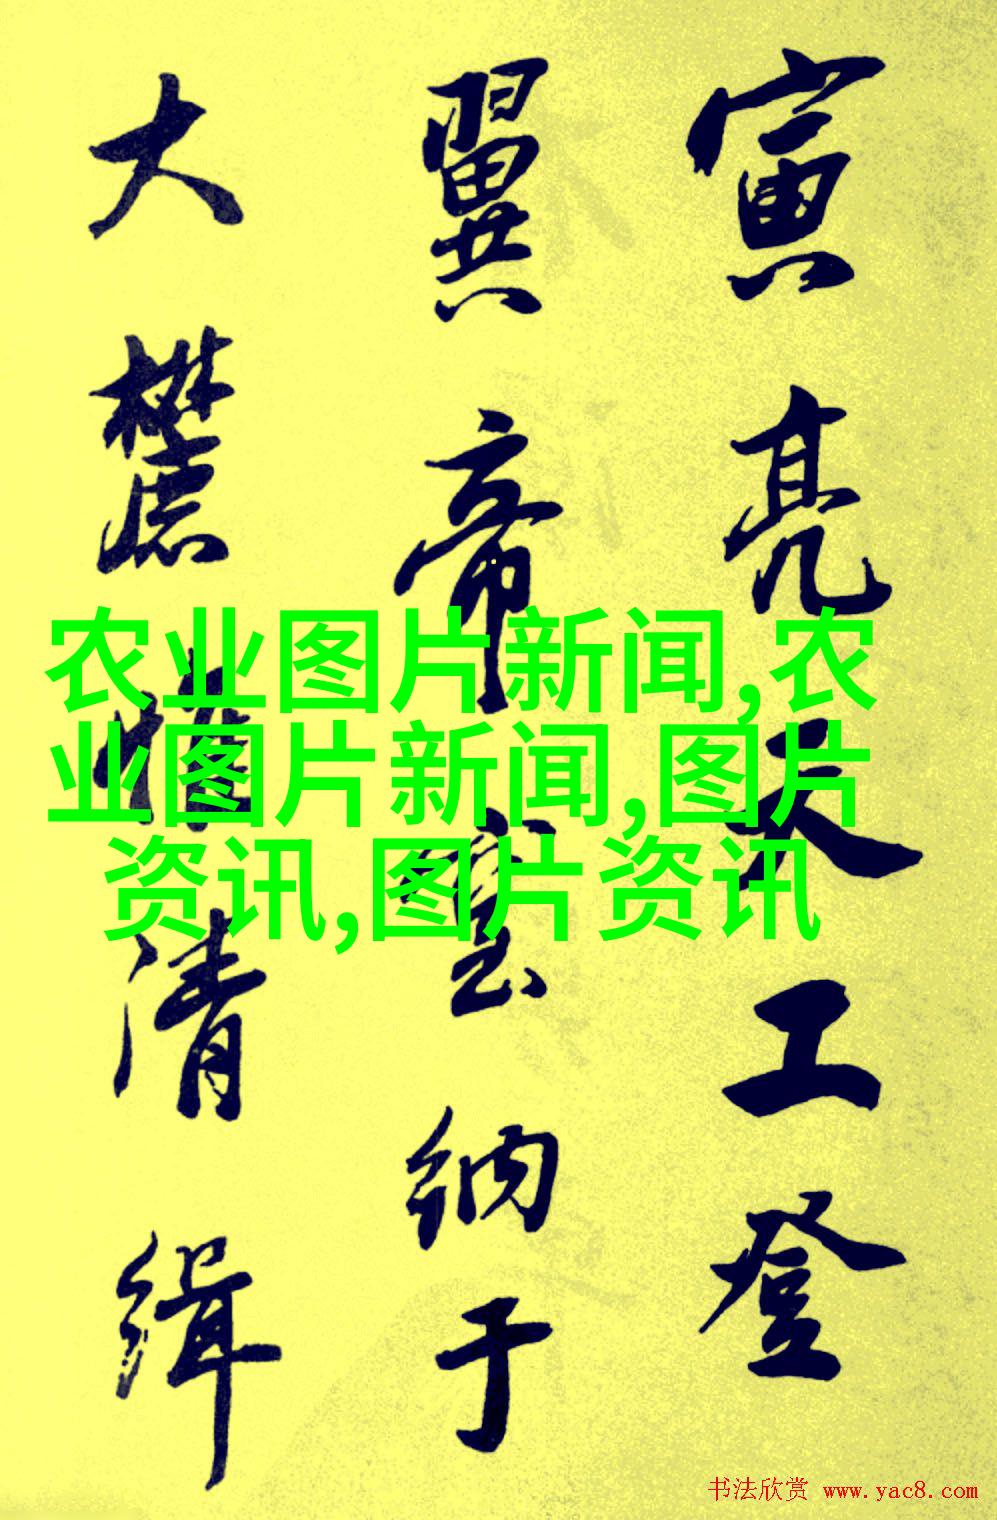 寅亮天工登
翼帝室納于
大麓惟清緝
农业图片新闻,农
业图片新闻,图片
资讯,图片资讯
书法欣赏 www.yac8.com